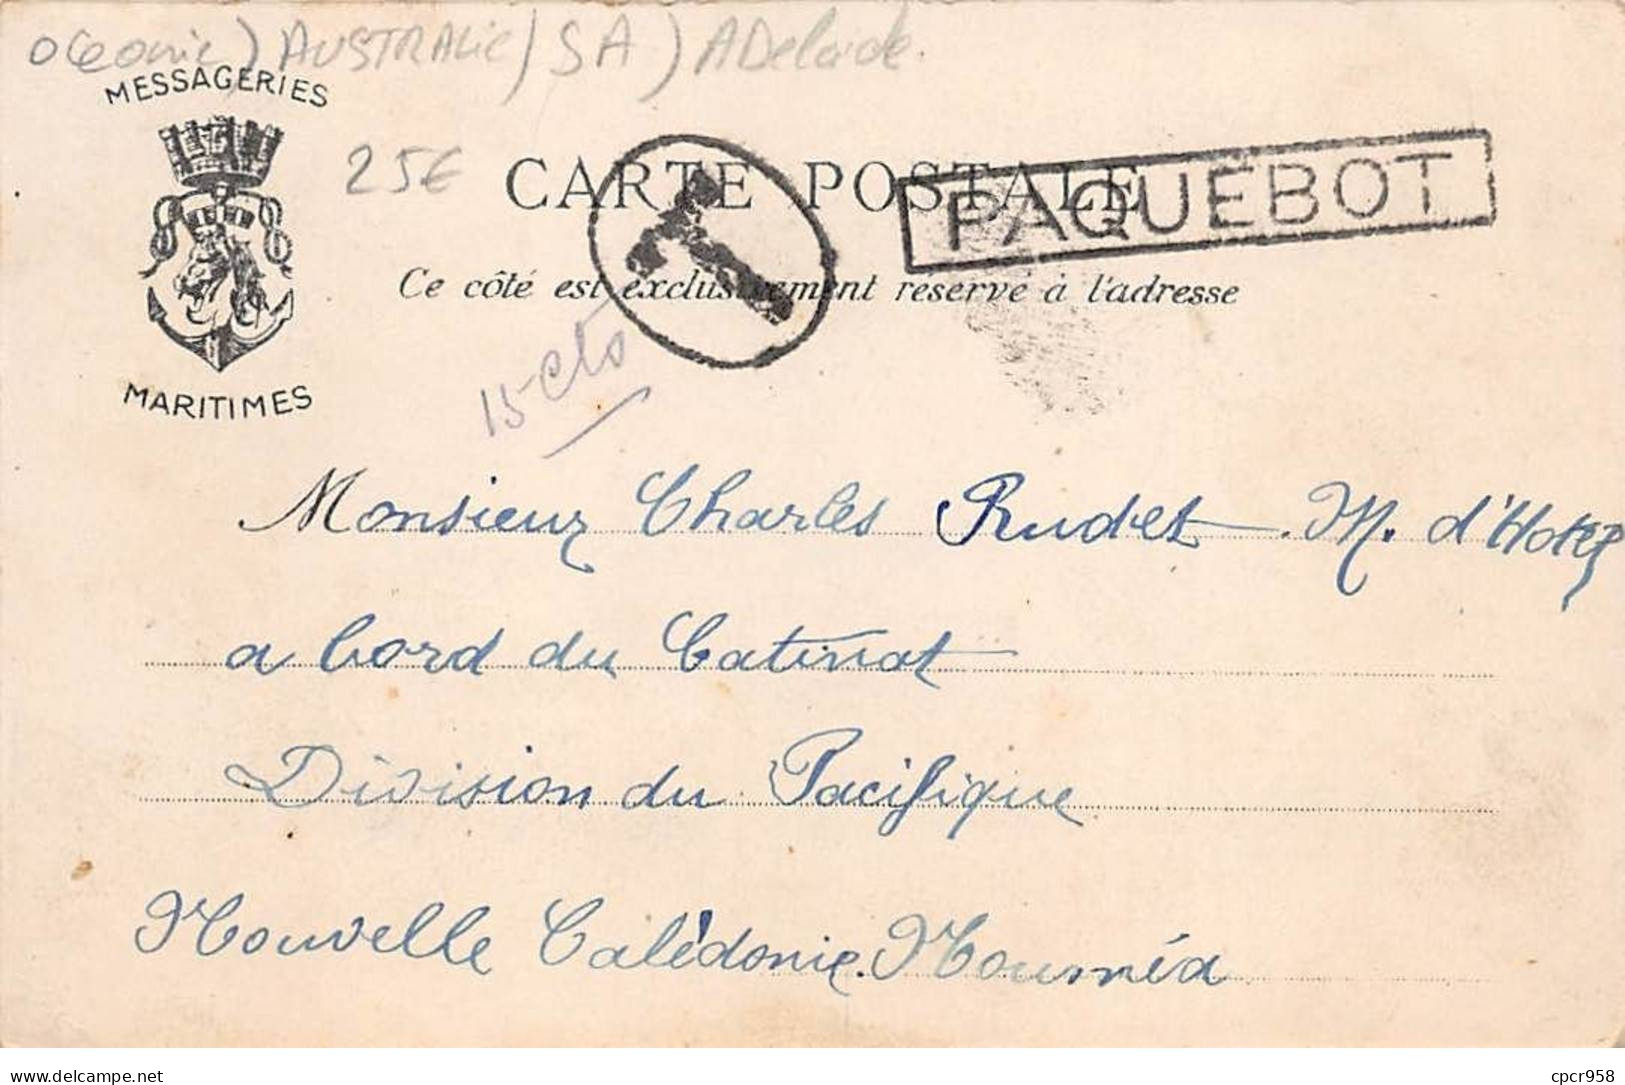 Oceanie) AUSTRALie / SA) ADelaide.
MESSAGERIES
MARITIMES
25€
CARTE POSTALE
T
PAQUEBOT
Ce côté est exclusivement réservé à l'adresse
15 cts
Monsieur Charles Rudet M. d'Hotel
a bord du Catinat
Division du Pacifique
Nouvelle Calédonie. Nouméa
delcampe.net
cpcr958